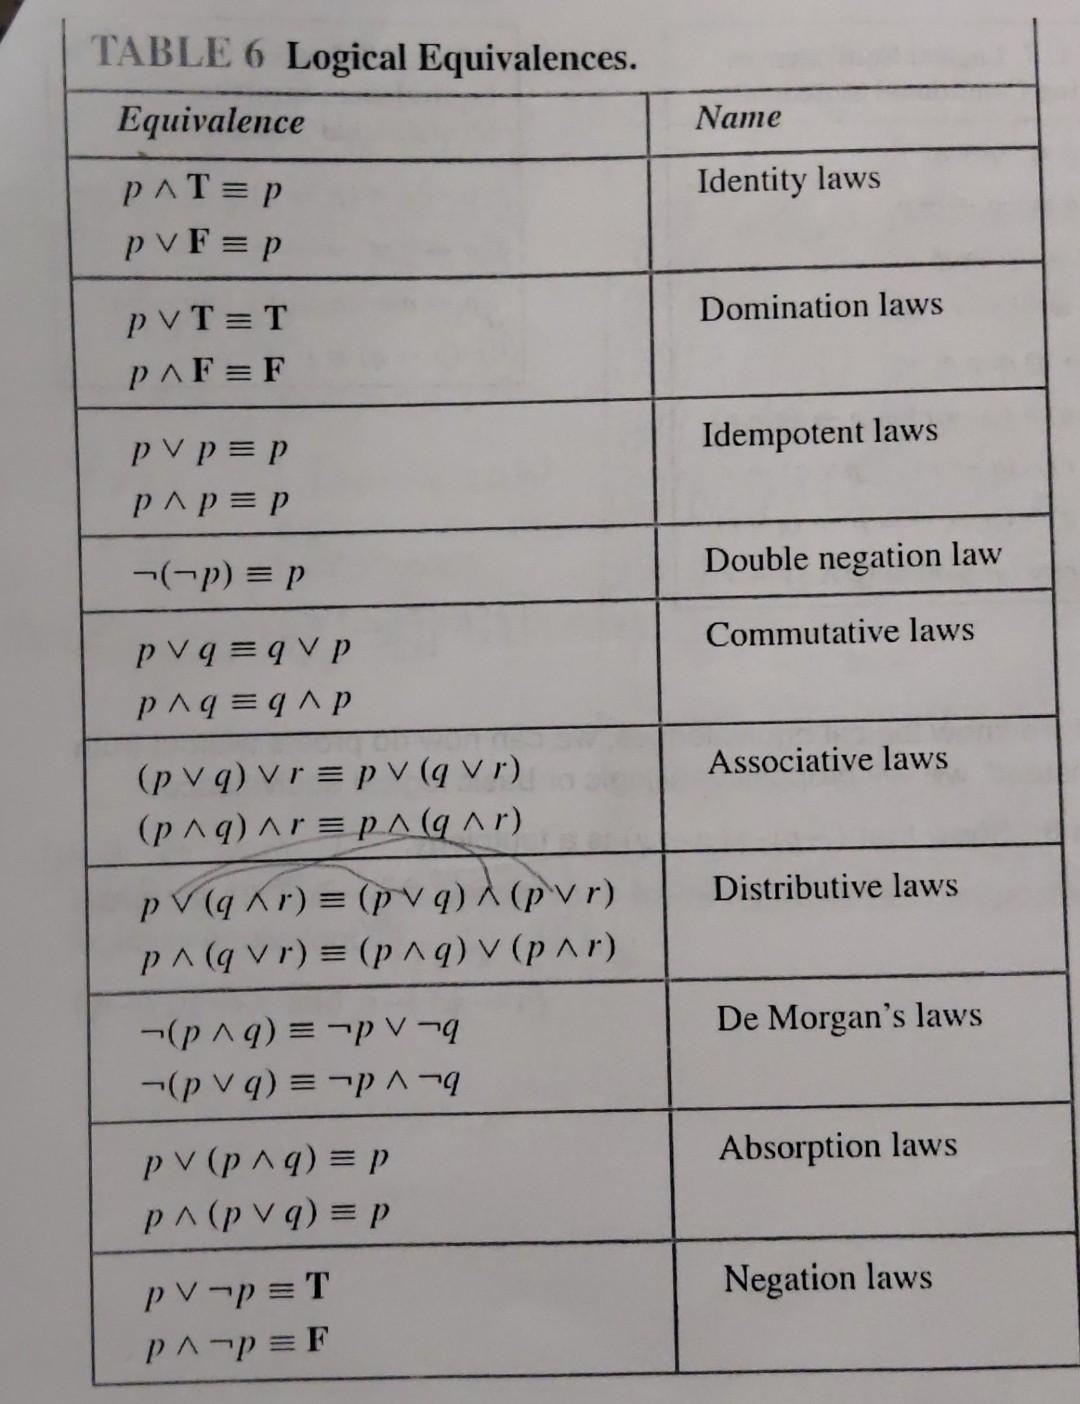 TABLE 6 Logical Equivalences.
Equivalence Name
p ∧ T ≡ p Identity laws
p ∨ F ≡ p
p ∨ T ≡ T Domination laws
p ∧ F ≡ F
p ∨ p ≡ p Idempotent laws
p ∧ p ≡ p
¬(¬p) ≡ p Double negation law
p ∨ q ≡ q ∨ p Commutative laws
p ∧ q ≡ q ∧ p
(p ∨ q) ∨ r ≡ p ∨ (q ∨ r) Associative laws
(p ∧ q) ∧ r ≡ p ∧ (q ∧ r)
p ∨ (q ∧ r) ≡ (p ∨ q) ∧ (p ∨ r) Distributive laws
p ∧ (q ∨ r) ≡ (p ∧ q) ∨ (p ∧ r)
¬(p ∧ q) ≡ ¬p ∨ ¬q De Morgan's laws
¬(p ∨ q) ≡ ¬p ∧ ¬q
p ∨ (p ∧ q) ≡ p Absorption laws
p ∧ (p ∨ q) ≡ p
p ∨ ¬p ≡ T Negation laws
p ∧ ¬p ≡ F